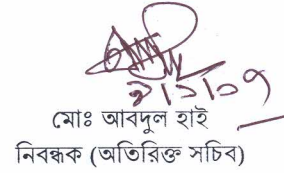 মোঃ আবদুল হাই
নিবন্ধক (অতিরিক্ত সচিব)